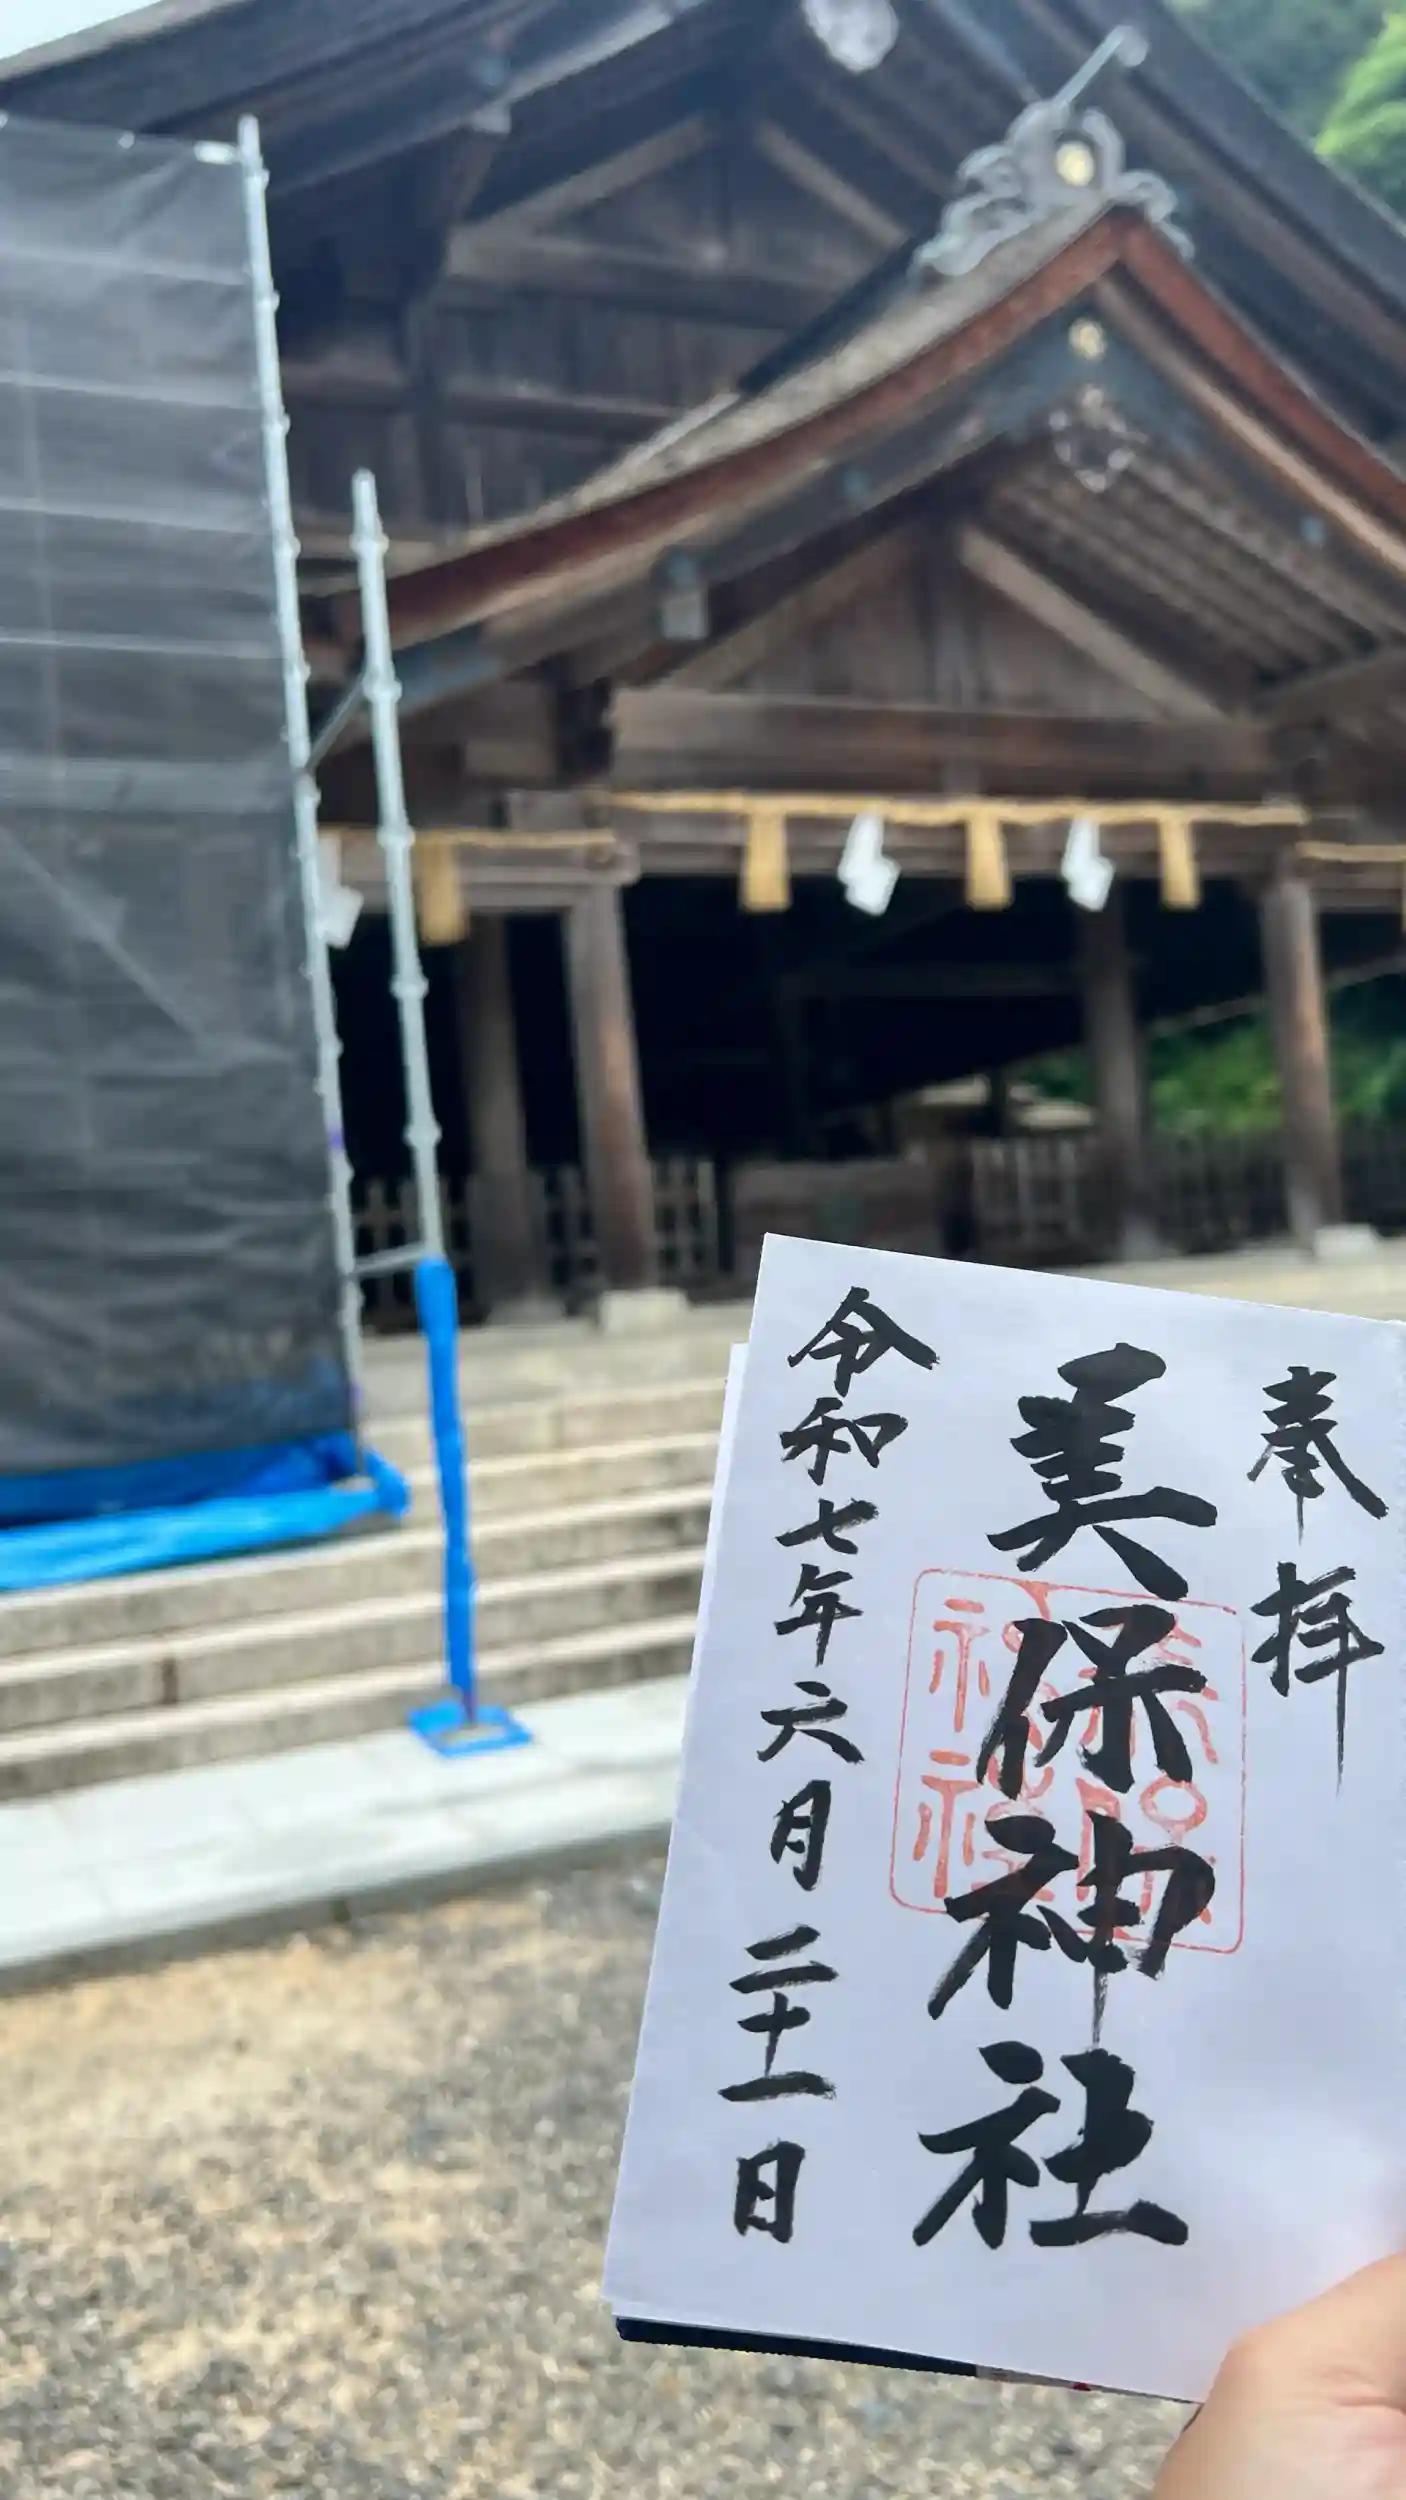 奉拝
美保神社
令和七年六月二十一日